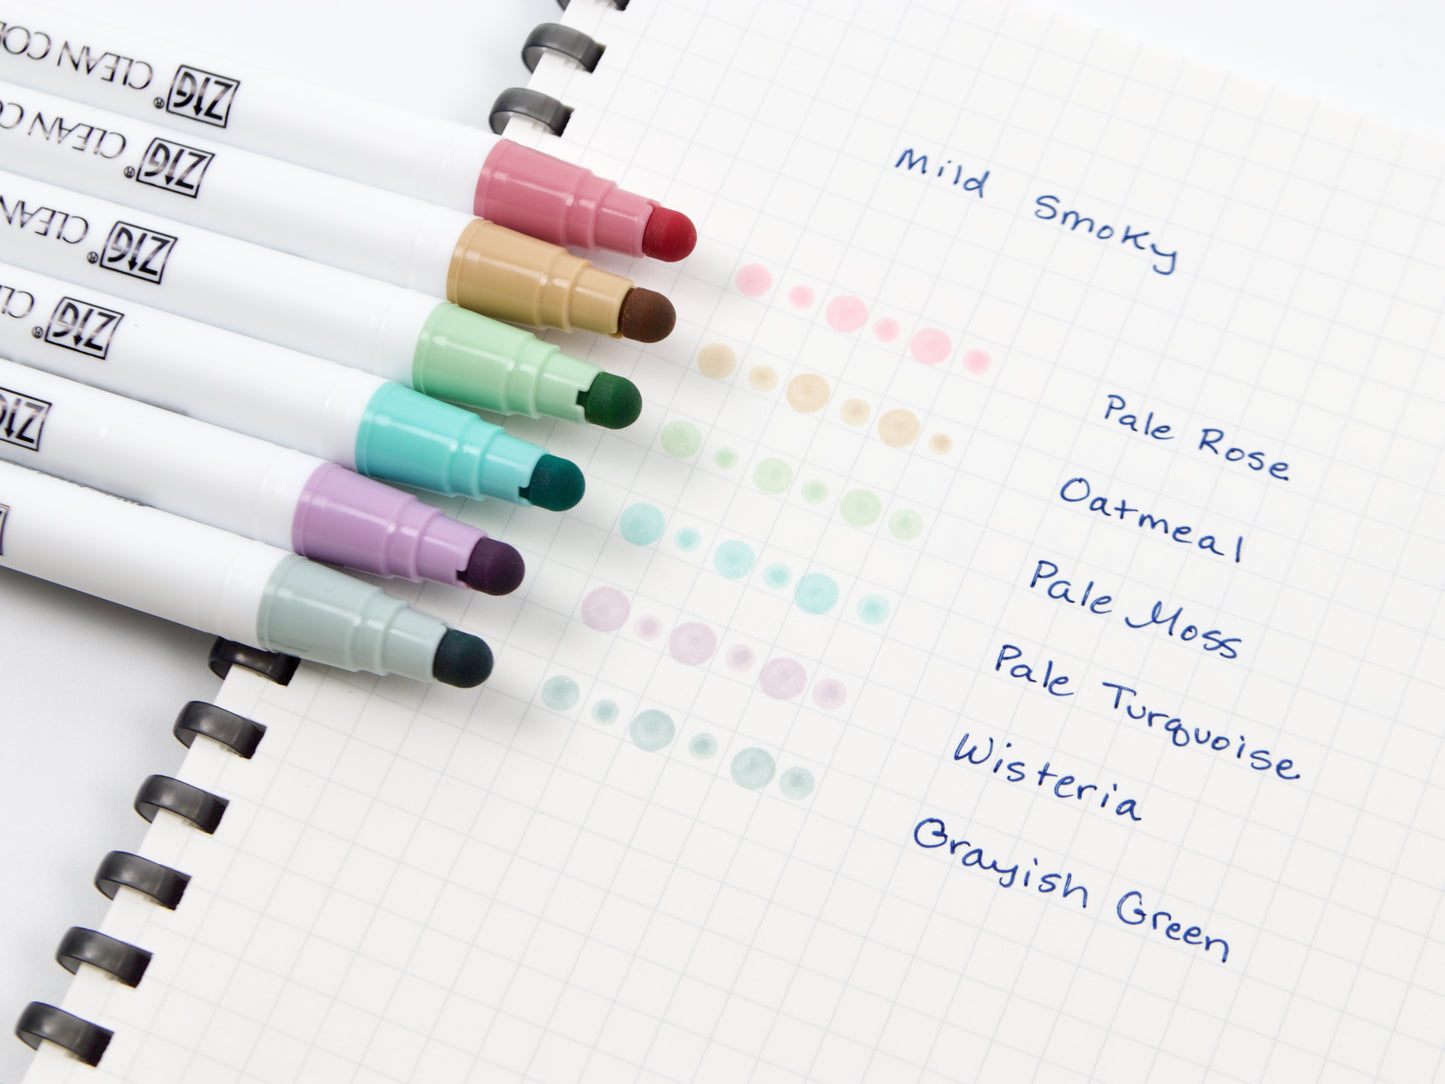 ZIG® CLEAN CO
ZIG® CLEAN C
ZIG® CLEAN
ZIG® CL
ZIG
Mild Smoky
Pale Rose
Oatmeal
Pale Moss
Pale Turquoise
Wisteria
Grayish Green